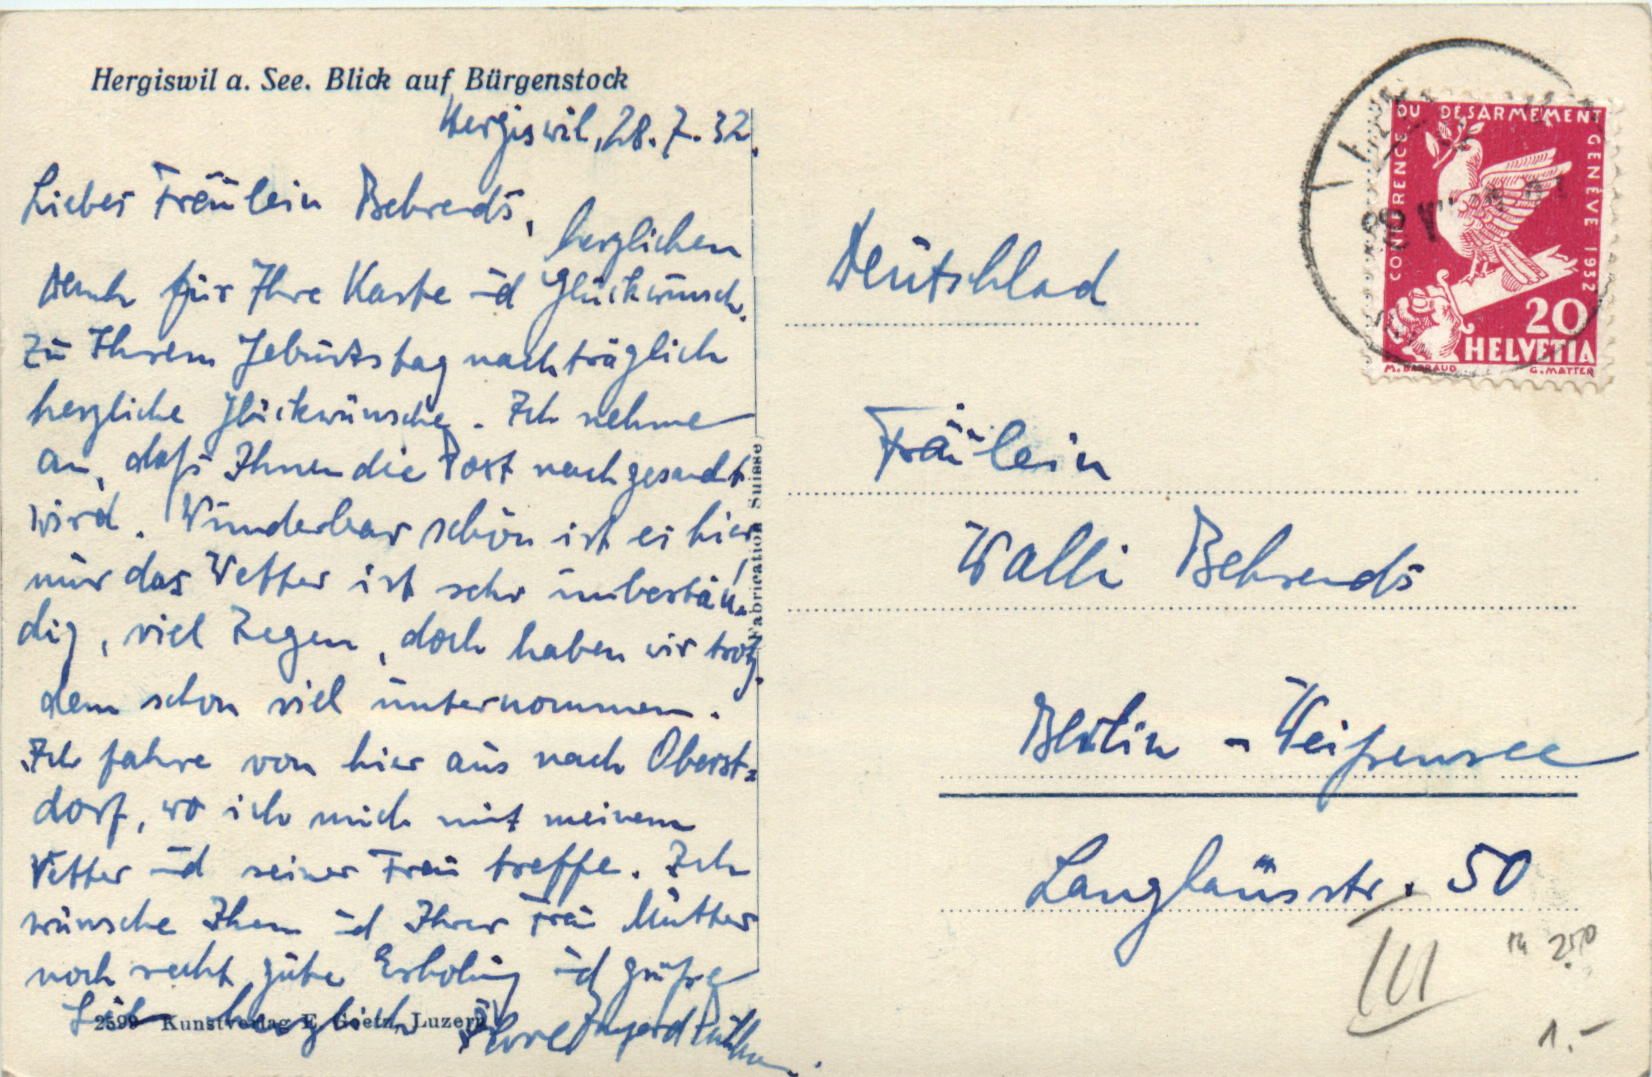 Hergiswil a. See. Blick auf Bürgenstock
Hergiswil, 28.7.32.
Liebes Fräulein Behrends,
herzlichen
Dank für Ihre Karte ud Glückwünsch.
Zu Ihrem Geburtstag nachträglich
herzliche Glückwünsche. Ich nehme
an, daß Ihnen die Post nachgesandt
wird. Wunderbar schön ist es hier,
nur das Wetter ist sehr unbestän-
dig, viel Regen, doch haben wir trotz-
dem schon viel unternommen.
Ich fahre von hier aus nach Oberst-
dorf, wo ich mich mit meinem
Vetter ud seiner Frau treffe. Ich
wünsche Ihnen ud Ihrer Frau Mutter
noch recht gute Erholung ud grüße
herzlich Ihre
2599 Kunstverlag E. Goetz, Luzern
Fabrication Suisse
CONFERENCE DU DESARMEMENT GENÈVE 1932
20
HELVETIA
M. BARRAUD G. MATTER
Deutschlad
Fräulein
Walli Behrends
Berlin - Weißensee
Langhausstr. 50
III
250
1.-